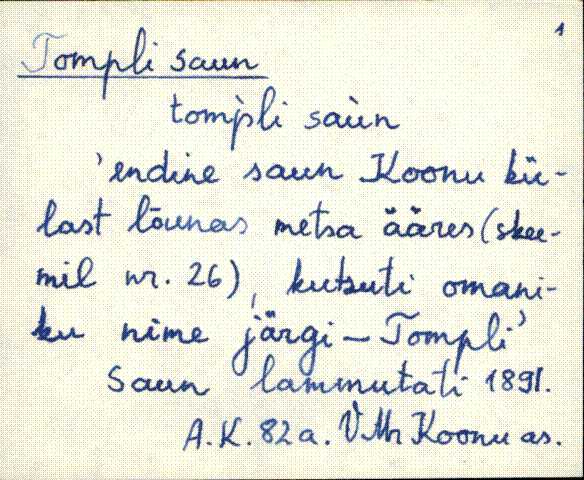 1
Tompli saun
tom̀pli saùn
'endine saun Koonu kü-
last lõunas metsa ääres (skee-
mil nr. 26), kutsuti omani-
ku nime järgi – Tompli'
Saun lammutati 1891.
A.K. 82 a. VMr Koonu as.